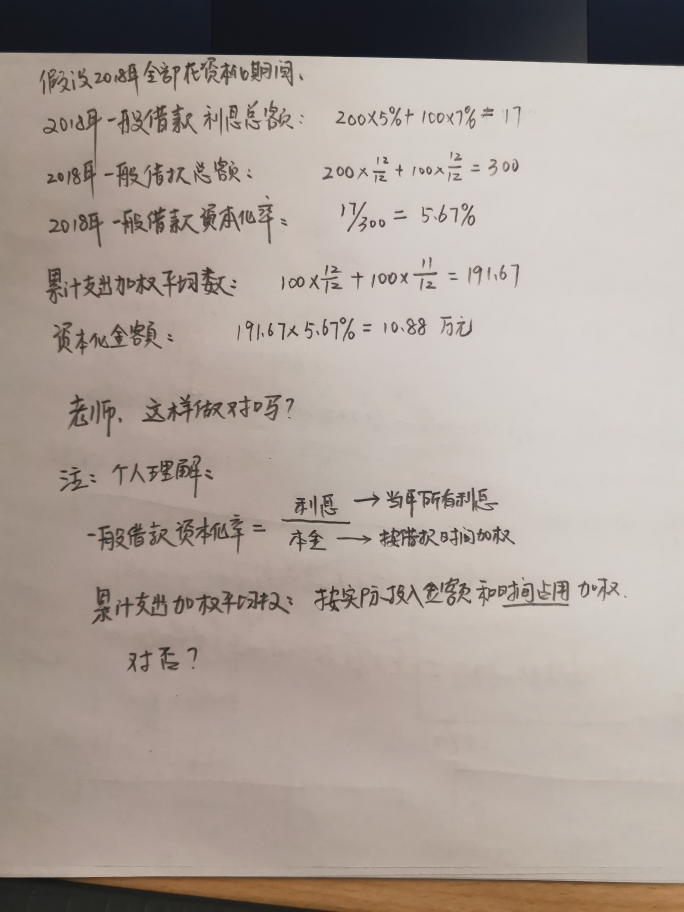 假设2018年全部在资本化期间、
2018年一般借款利息总额： 200×5%+100×7% = 17
2018年一般借款总额： 200×12/12+100×12/12=300
2018年一般借款资本化率： 17/300 = 5.67%
累计支出加权平均数： 100×12/12+100×11/12=191.67
资本化金额： 191.67×5.67%=10.88 万元
老师、这样做对吗？
注：个人理解：
一般借款资本化率= 利息 → 当年所有利息
本金 → 按借款时间加权
累计支出加权平均数：按实际投入金额和时间占用加权.
对否？